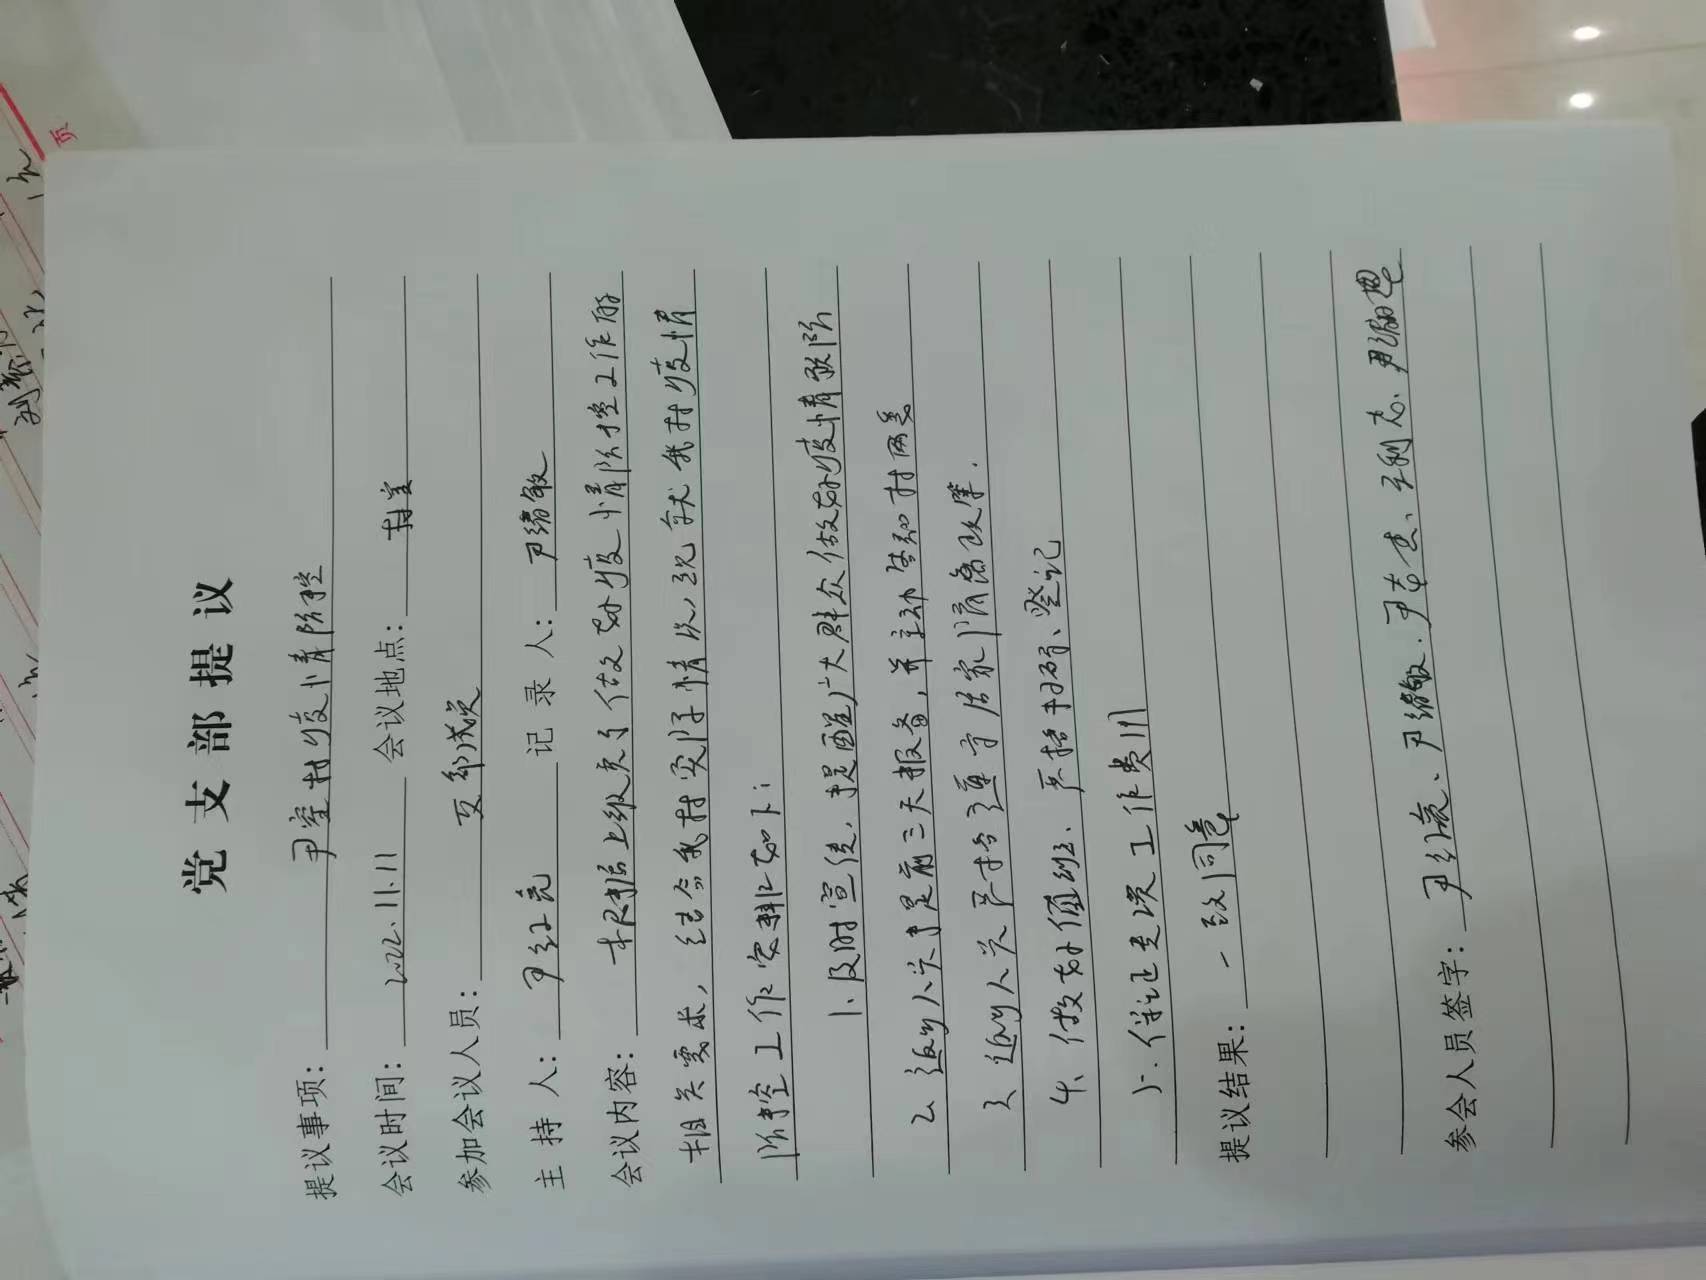 党支部提议
提议事项：尹窑村疫情防控
会议时间：2022.11.11 会议地点：村室
参加会议人员：支部成员
主持人：尹红亮 记录人：尹绪敏
会议内容：根据上级关于做好疫情防控工作的
相关要求，结合我村实际情况，现就我村疫情
防控工作安排如下：
1、及时宣传，提醒广大群众做好疫情预防
2、返乡人员提前三天报备，并主动告知村两委
3、返乡人员严格遵守居家隔离政策.
4、做好值班、严格扫码、登记
5、保证专项工作费用
提议结果：一致同意
参会人员签字：尹红亮、尹绪敏、尹志